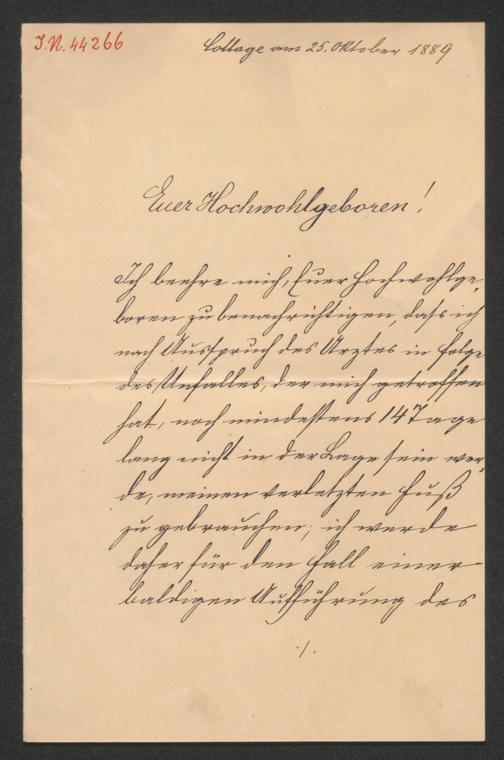 I.N. 44266
Cottage am 25. Oktober 1889
Euer Hochwohlgeboren!
Ich beehre mich, Euer Hochwohlge-
boren zu benachrichtigen, dass ich
nach Ausspruch des Arztes in Folge
des Unfalles, der mich getroffen
hat, noch mindestens 14 Tage
lang nicht in der Lage sein wer-
de, meinen verletzten Fuß
zu gebrauchen; ich werde
daher für den Fall einer
baldigen Aufführung des
./.